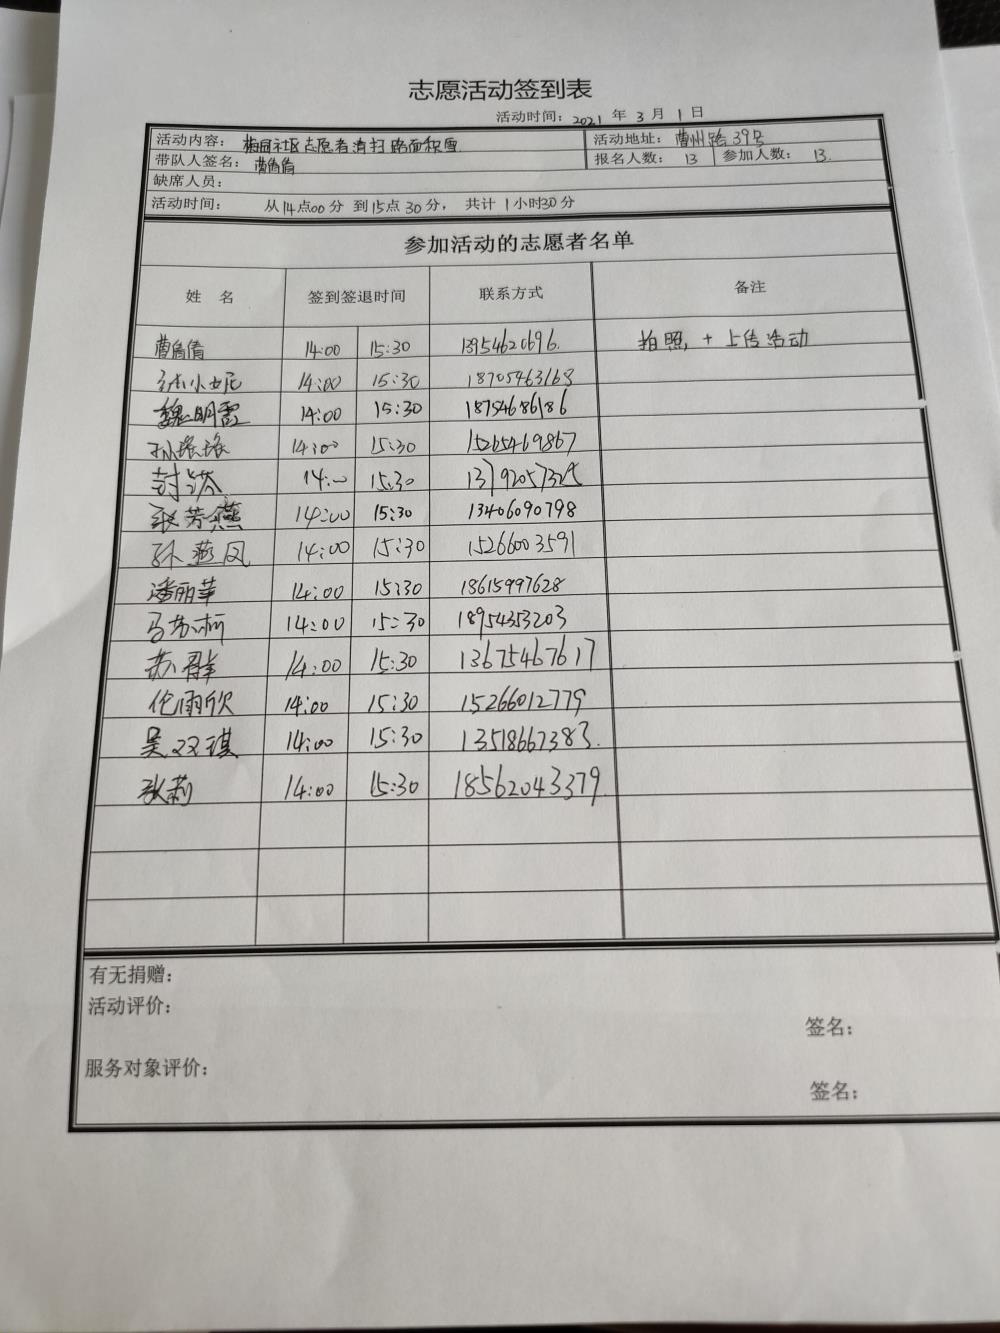 志愿活动签到表
活动时间：2021 年 3 月 1 日
活动内容：梅园社区志愿者清扫路面积雪 活动地址：曹州路39号
带队人签名：曹倩倩 报名人数：13 参加人数：13.
缺席人员：
活动时间： 从14点00分 到15点30分， 共计1小时30分
参加活动的志愿者名单
姓 名 签到签退时间 联系方式 备注
曹倩倩 14:00 15:30 13954620696. 拍照，+上传活动
小妮 14:00 15:30 18705463163
魏明霞 14:00 15:30 18754686186
孙珞珞 14:00 15:30 15265469867
封 14:00 15:30 13792057325
张芳燕 14:00 15:30 13406090798
孙燕凤 14:00 15:30 15266003591
潘丽苹 14:00 15:30 18615997628
马苏柯 14:00 15:30 18954353203
苏群 14:00 15:30 13675467617
伦雨欣 14:00 15:30 15266012779
吴双琪 14:00 15:30 13518667383.
张莉 14:00 15:30 18562043379
有无捐赠：
活动评价：
签名：
服务对象评价：
签名：